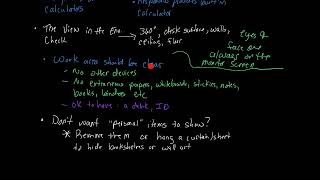 calculator
calculator
• The View in the Env. → 360°, desk surface, walls,
Check ceiling, floor
Eyes &
face are
always on the
monitor screen
• Work area should be clear
- No other devices
- No extraneous papers, whiteboards, stickies, notes,
books, binders etc
- OK to have: a drink, ID
• Don't want "personal" items to show?
* Remove them or hang a curtain/sheet
to hide bookshelves or wall art